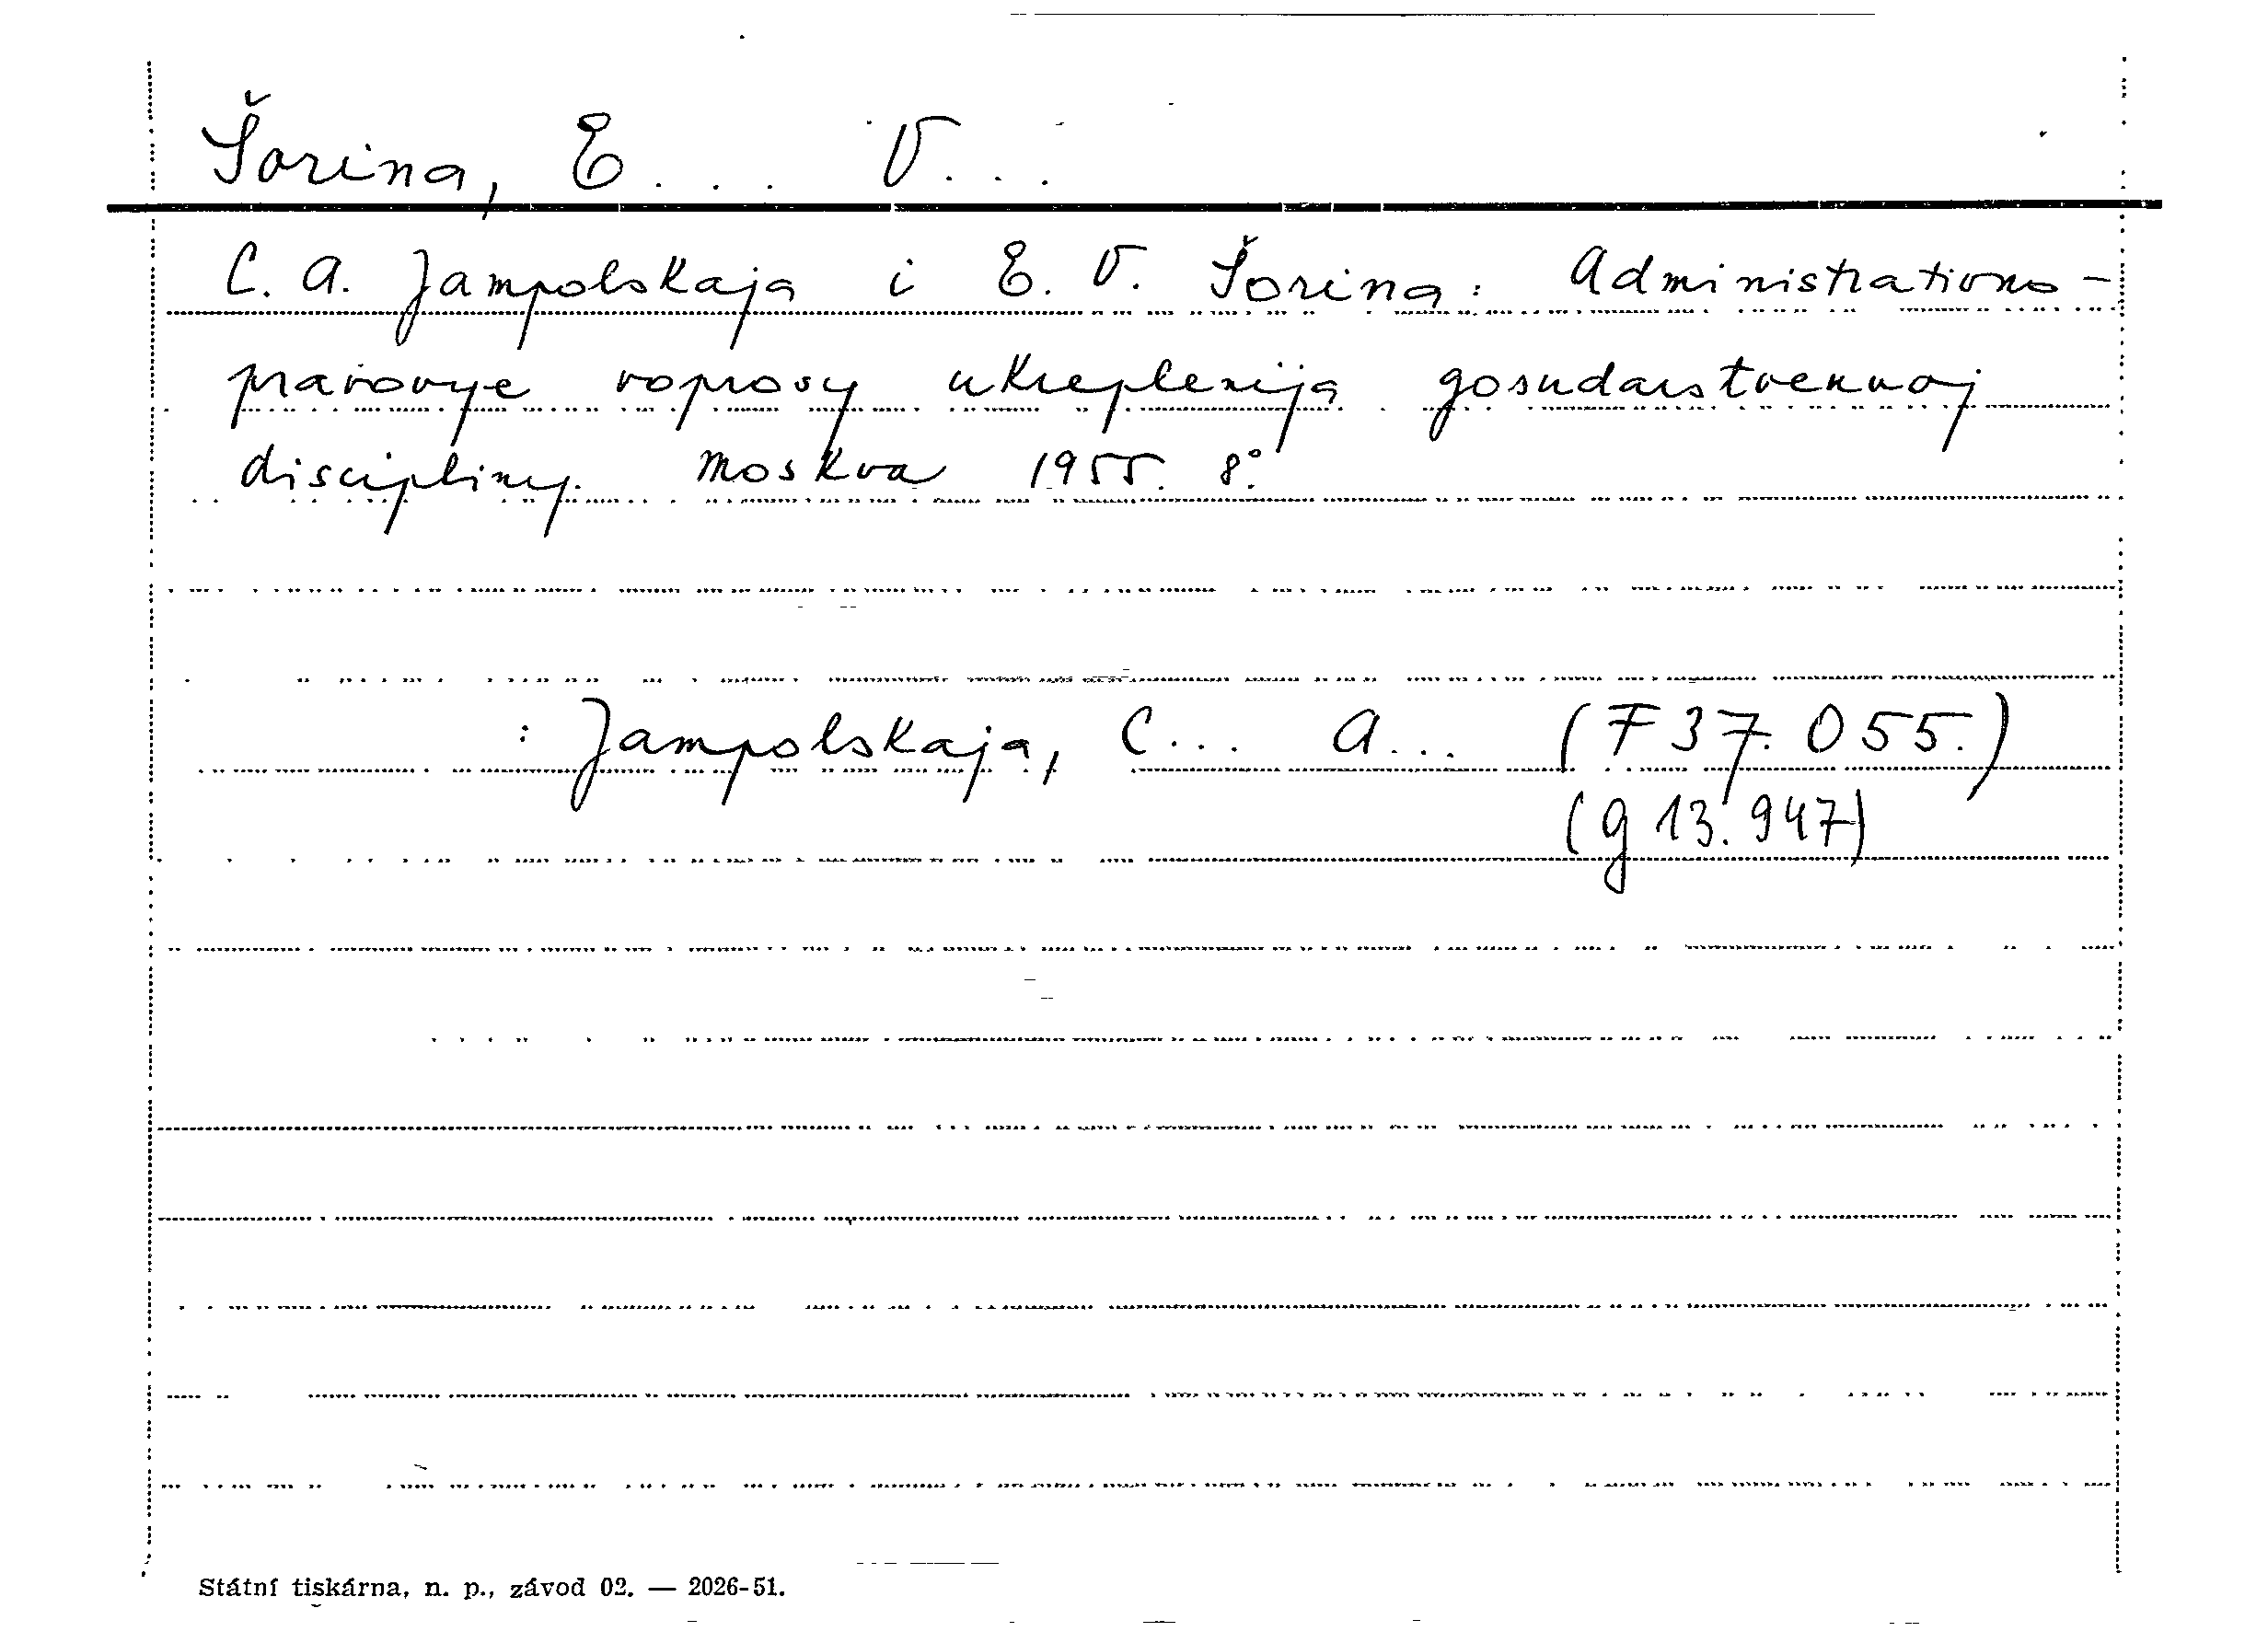 Šorina, E... V...
C. A. Jampolskaja i E. V. Šorina: Administrativno-
pravovye voprosy ukreplenija gosudarstvennoj
discipliny. Moskva 1955. 8°.
: Jampolskaja, C... A... (F 37.055.)
(g 13.947)
Státní tiskárna, n. p., závod 02. — 2026-51.